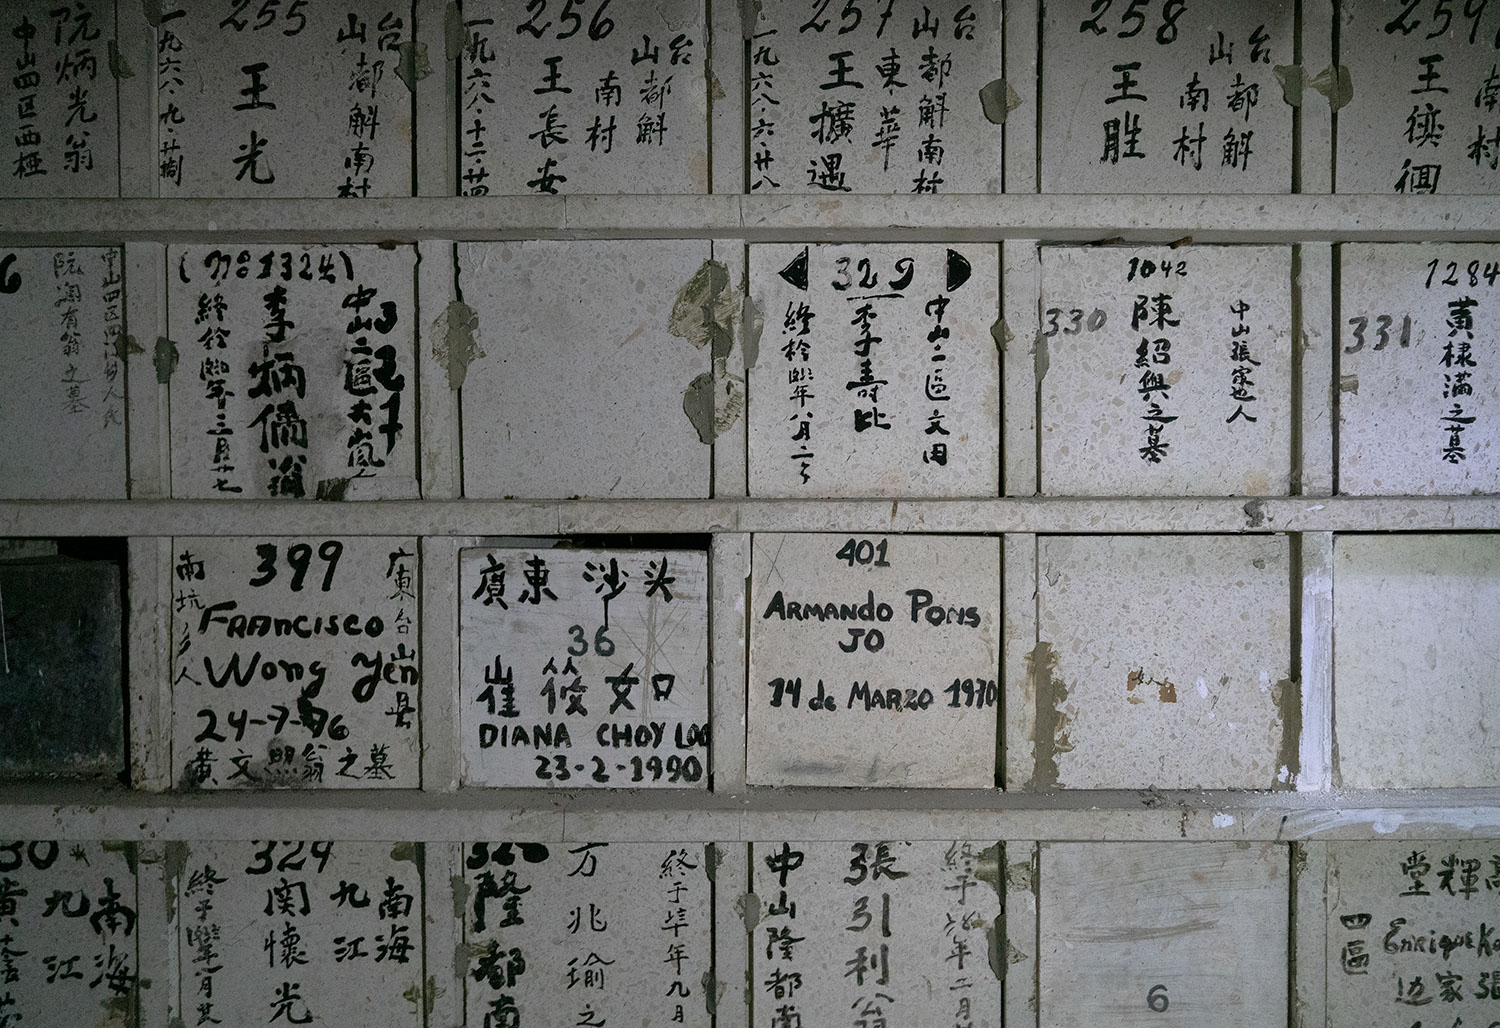 阮炳光翁
中山四区西桠
255
台山都斛南村
王光
一九六八·九·廿捌
256
台山都斛
南村
王長安
一九六八·十二·廿四
257
台山都斛南村
東華
王擴遇
一九六八·六·廿八
258
台山都斛
南村
王胜
259
南村
王
6
中山四区
阮 有翁之墓
(No 1324)
327
中山二區大嵐
李炳 翁
終於 年三月廿七
329
中山二區文田
李壽
終於 年八月二
1042
330
中山張家边人
陳紹興之墓
1284
331
黃棣滿之墓
399
廣東台山县
南坑 人
Francisco
Wong Yen
24-7-76
黃文照翁之墓
廣東 沙头
36
崔筱女口
DIANA CHOY LOO
23-2-1990
401
ARMANDO PONS
JO
14 de MARZO 1970
30
南海
九江
黃
324
南海
九江
関懷光
終于 年 月
終于 年九月
方兆瑜之
隆都南
終于 年二月
張引利翁
中山隆都南
6
輝堂
Enrique
四區
边家張